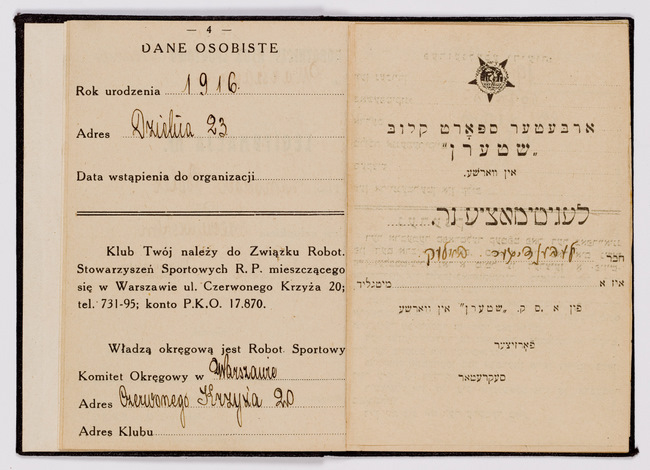 — 4 —
DANE OSOBISTE
Rok urodzenia 1916.
Adres Dzielna 23
Data wstąpienia do organizacji
Klub Twój należy do Związku Robot.
Stowarzyszeń Sportowych R. P. mieszczącego
się w Warszawie ul. Czerwonego Krzyża 20;
tel. 731-95; konto P.K.O. 17.870.
Władzą okręgową jest Robot. Sportowy
Komitet Okręgowy w Warszawie
Adres Czerwonego Krzyża 20
Adres Klubu
ארבעטער ספּאָרט קלוב
„שטערן"
אין ווארשע.
לעגיטימאציע נר.
חבר
איז א מיטגליד
פון א. ס. ק. „שטערן" אין ווארשע
פֿאָרזיצער
סעקרעטאר